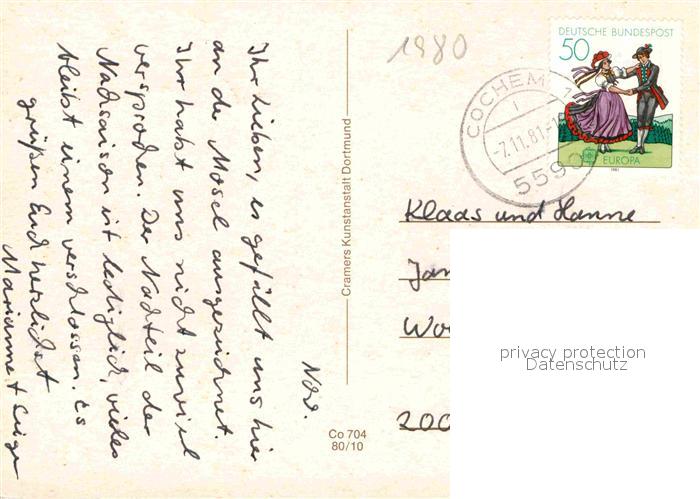 Nov.
Ihr Lieben, es gefällt uns hier
an der Mosel ausgezeichnet.
Ihr habt uns nicht zuviel
versprochen. Der Nachteil der
Nachsaison ist lediglich, vieles
bleibt einem verschlossen. Es
grüßen Euch herzlichst
Marianne +
Cramers Kunstanstalt Dortmund
Co 704
80/10
1980
DEUTSCHE BUNDESPOST
50
EUROPA
1981
COCHEM 1
-7.11.81.-1
559
Klaas und Hanne
Jan
Wo
200
privacy protection
Datenschutz